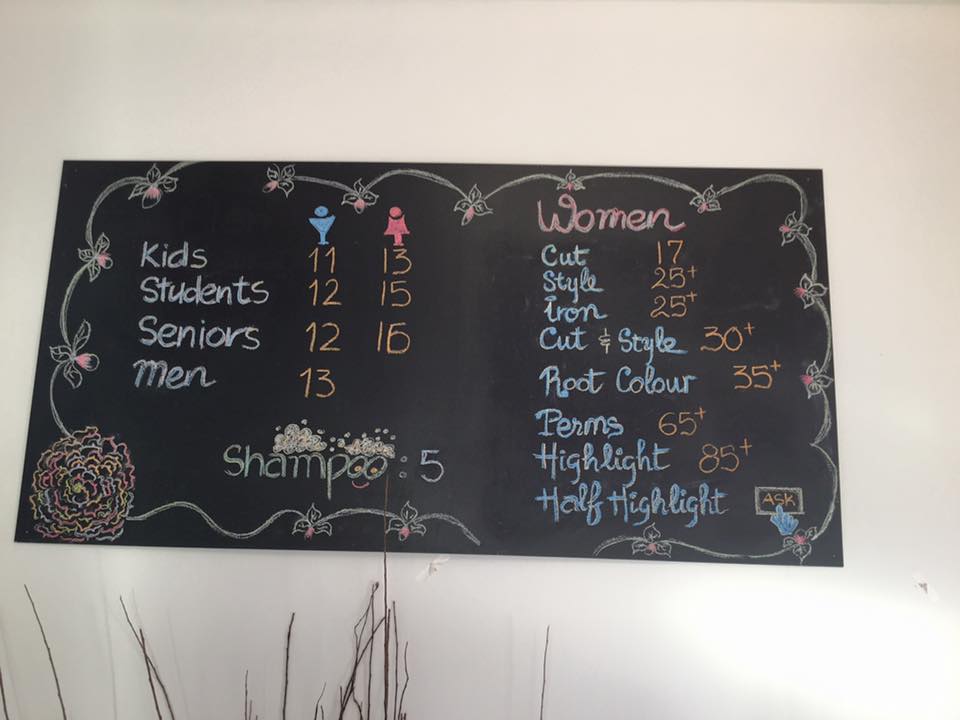 Kids 11 13
Students 12 15
Seniors 12 16
Men 13
Shampoo : 5
Women
Cut 17
Style 25+
Iron 25+
Cut & Style 30+
Root Colour 35+
Perms 65+
Highlight 85+
Half Highlight ASK